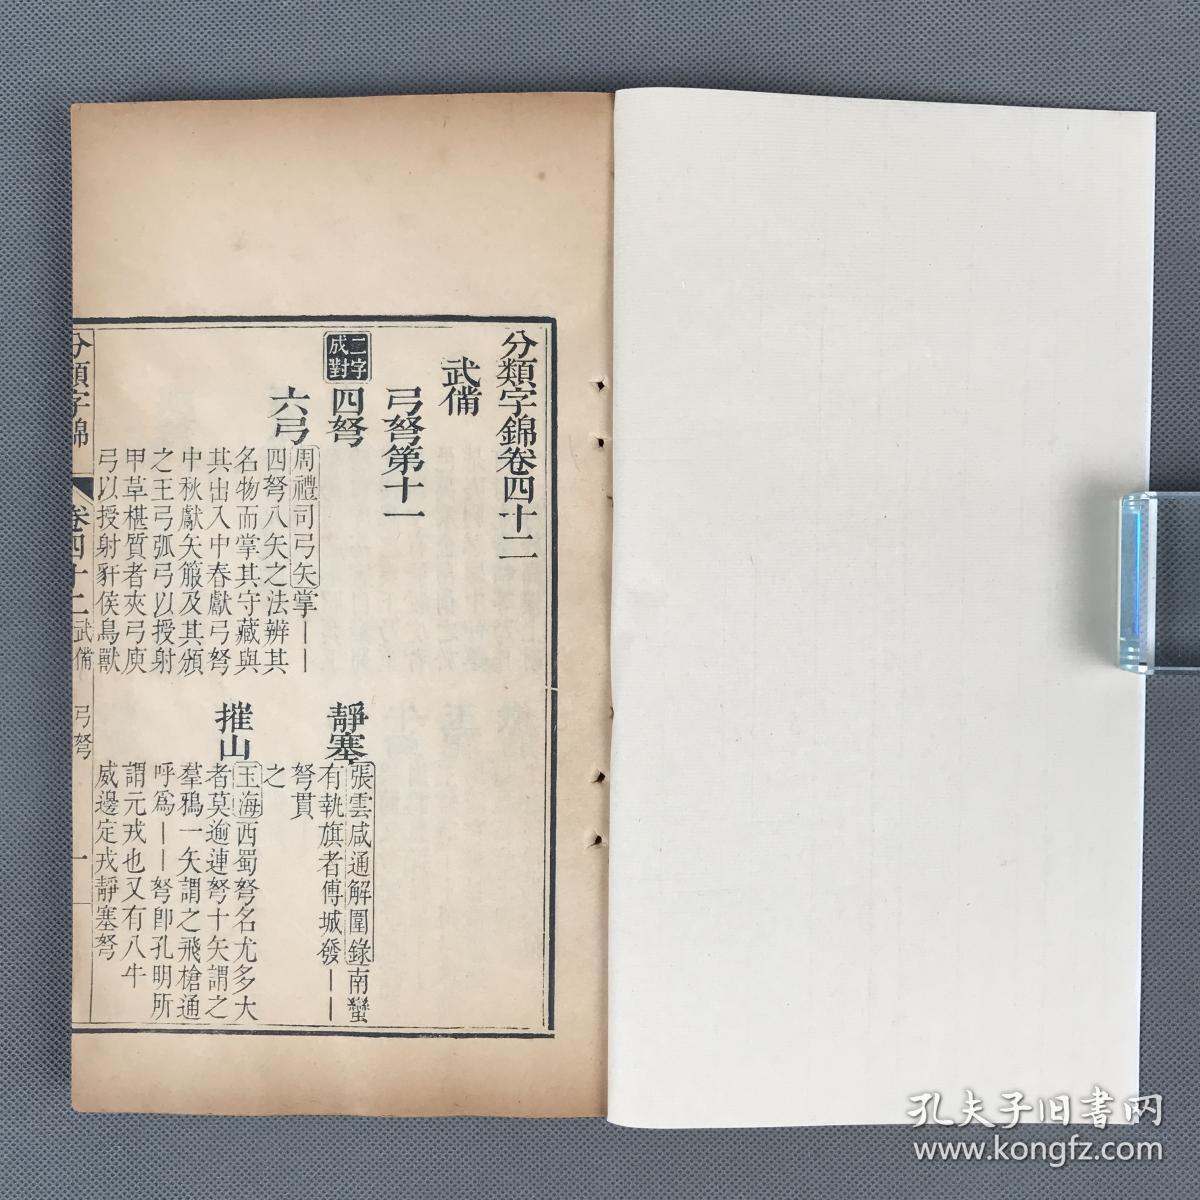 分類字錦卷四十二
武備
弓弩第十一
二字
成對
四弩
六弓
周禮司弓矢掌｜｜
四弩八矢之法辨其
名物而掌其守藏與
其出入中春獻弓弩
中秋獻矢箙及其頒
之王弓弧弓以授射
甲革椹質者夾弓庾
弓以授射豻侯鳥獸
靜塞
張雲咸通解圍錄南蠻
有執旗者傅城發｜｜
弩貫
之
摧山
玉海西蜀弩名尤多大
者莫逾連弩十矢謂之
羣鴉一矢謂之飛槍通
呼爲｜｜弩卽孔明所
謂元戎也又有八牛
威邊定戎靜塞弩
分類字錦
卷四十二
武備
弓弩
一
孔夫子旧书网
www.kongfz.com